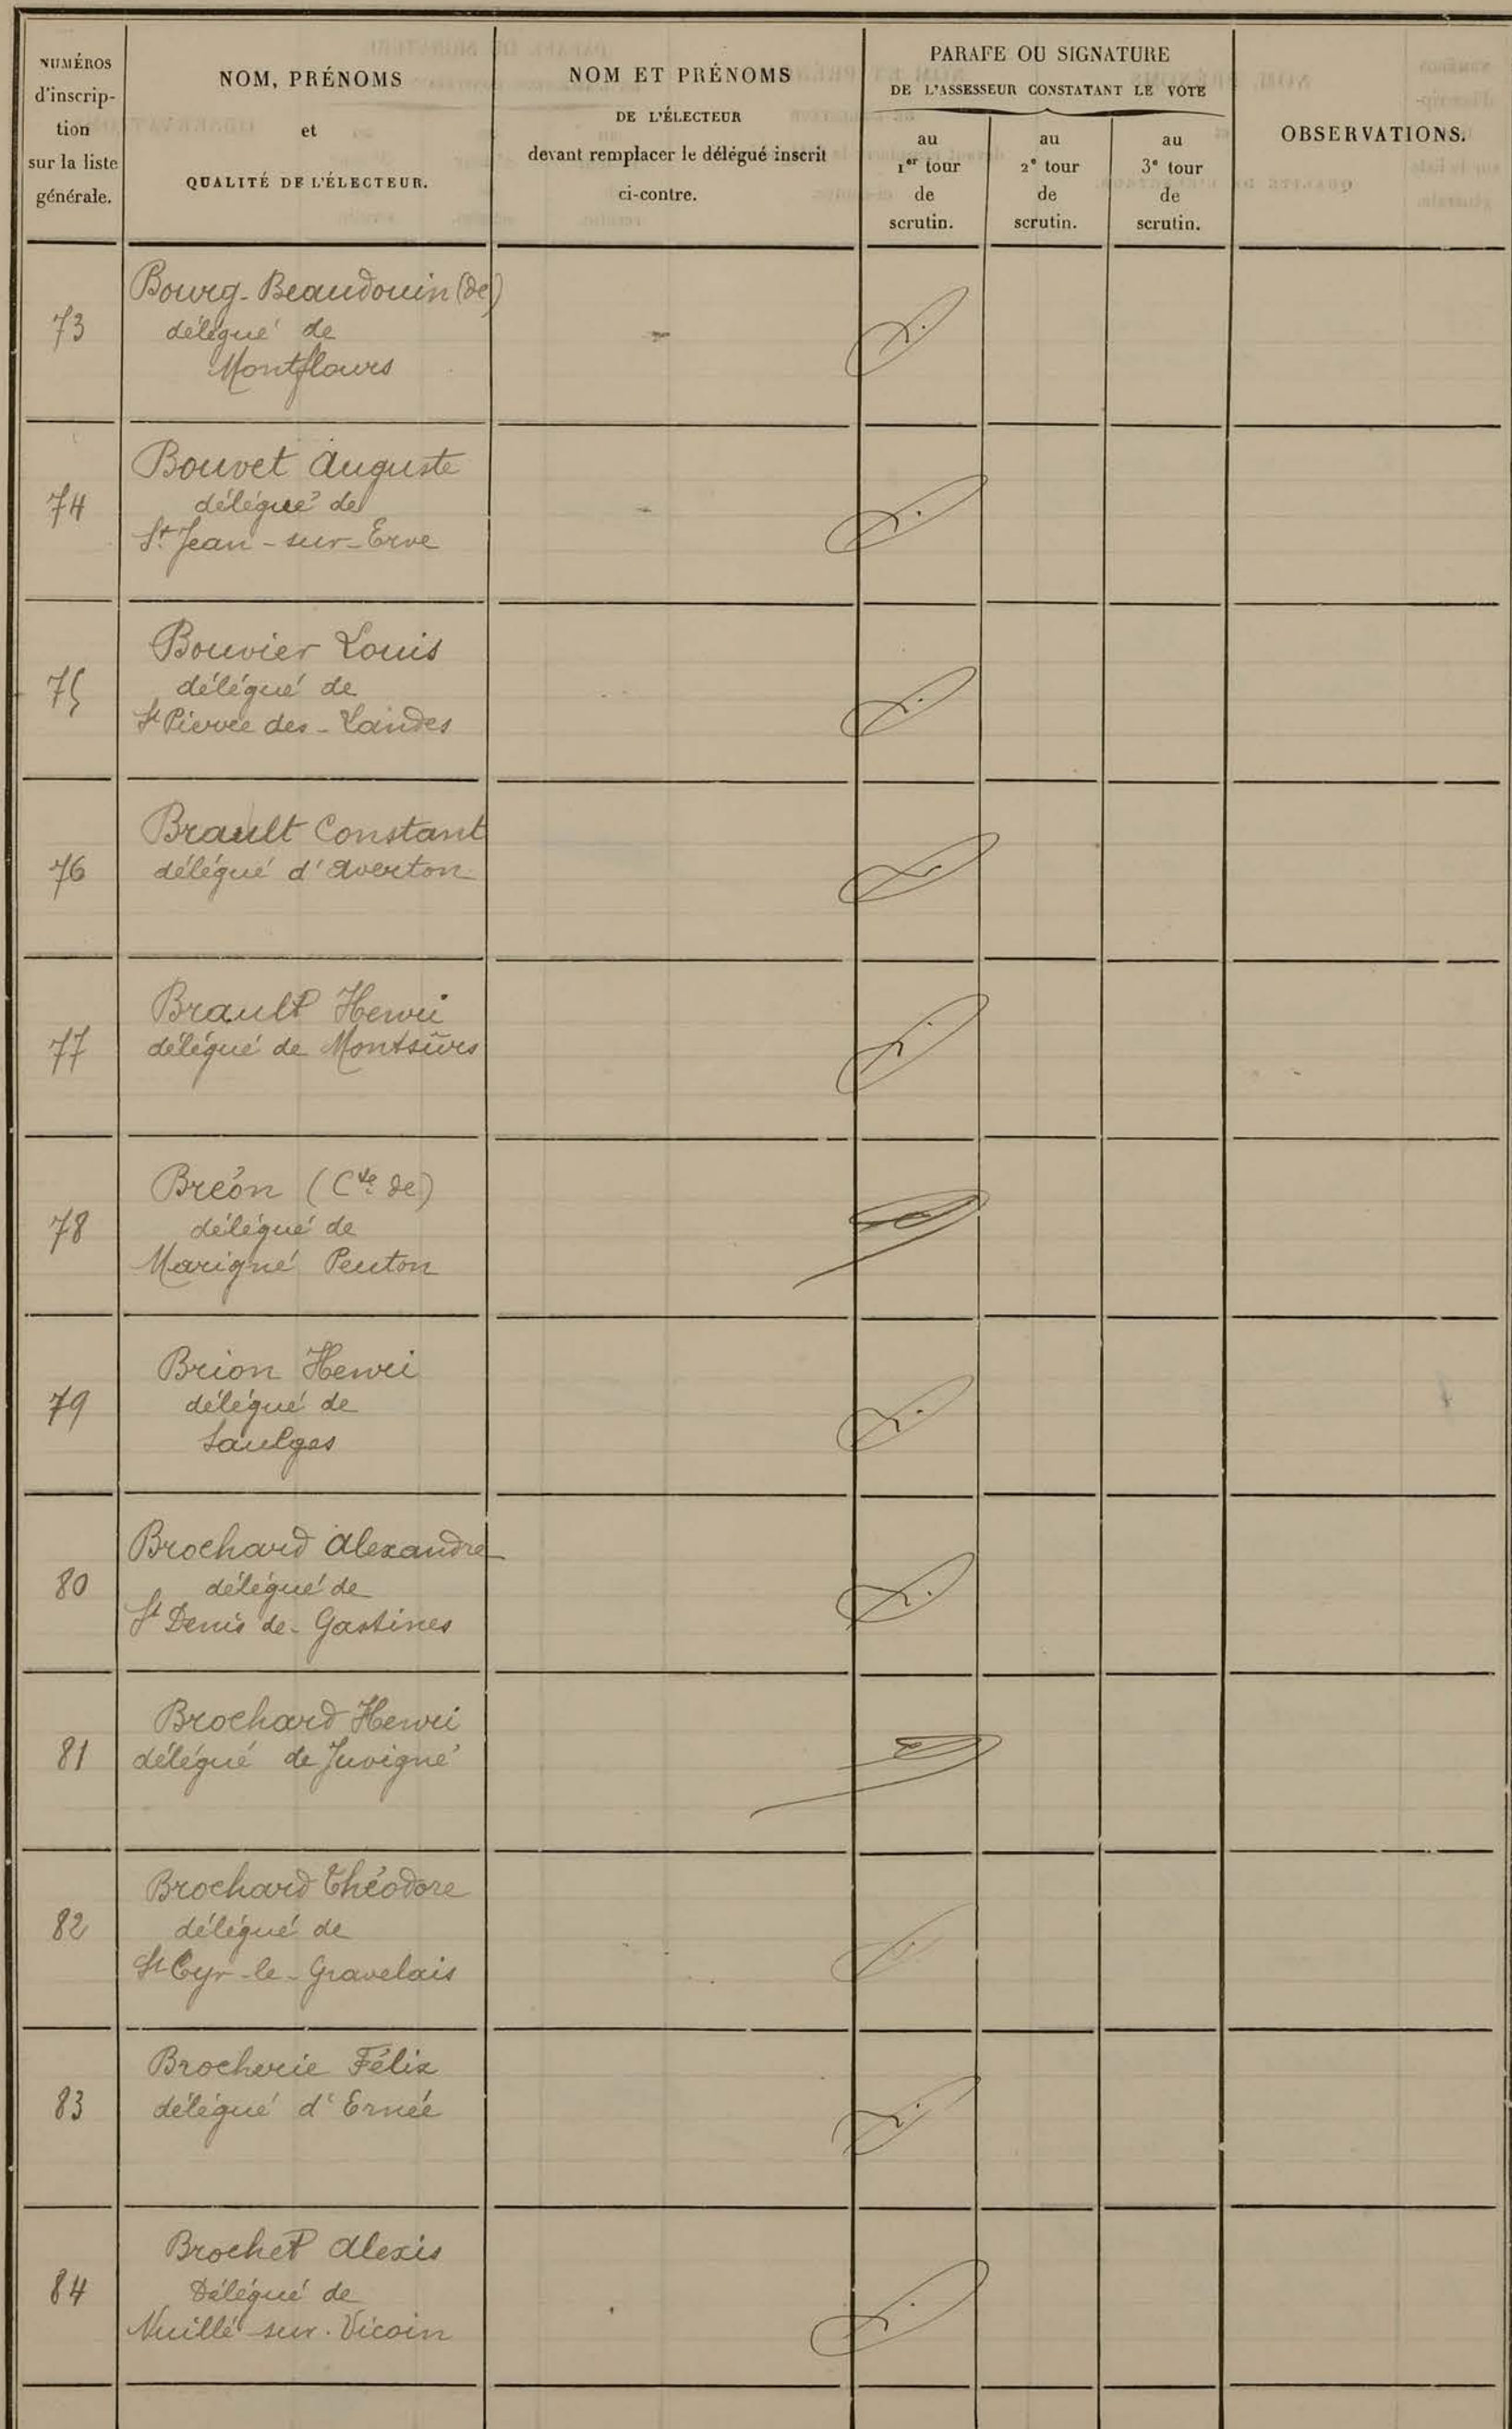 NUMÉROS
d'inscrip-
tion
sur la liste
générale.
NOM, PRÉNOMS
et
QUALITÉ DE L'ÉLECTEUR.
NOM ET PRÉNOMS
DE L'ÉLECTEUR
devant remplacer le délégué inscrit
ci-contre.
PARAFE OU SIGNATURE
DE L'ASSESSEUR CONSTATANT LE VOTE
au
1er tour
de
scrutin.
au
2e tour
de
scrutin.
au
3e tour
de
scrutin.
OBSERVATIONS.
73
Bourg-Beaudouin (de)
délégué de
Montflours
74
Bouvet Auguste
délégué de
St Jean-sur-Erve
75
Bouvier Louis
délégué de
St Pierre des-Landes
76
Brault Constant
délégué d'Averton
77
Brault Henri
délégué de Montsûrs
78
Bréon (Cte de)
délégué de
Marigné Peuton
79
Brion Henri
délégué de
Saulges
80
Brochard Alexandre
délégué de
St Denis de-Gastines
81
Brochard Henri
délégué de Juvigné
82
Brochard Théodore
délégué de
St Cyr-le-Gravelais
83
Brocherie Félix
délégué d'Ernée
84
Brochet Alexis
Délégué de
Nuillé sur-Vicoin